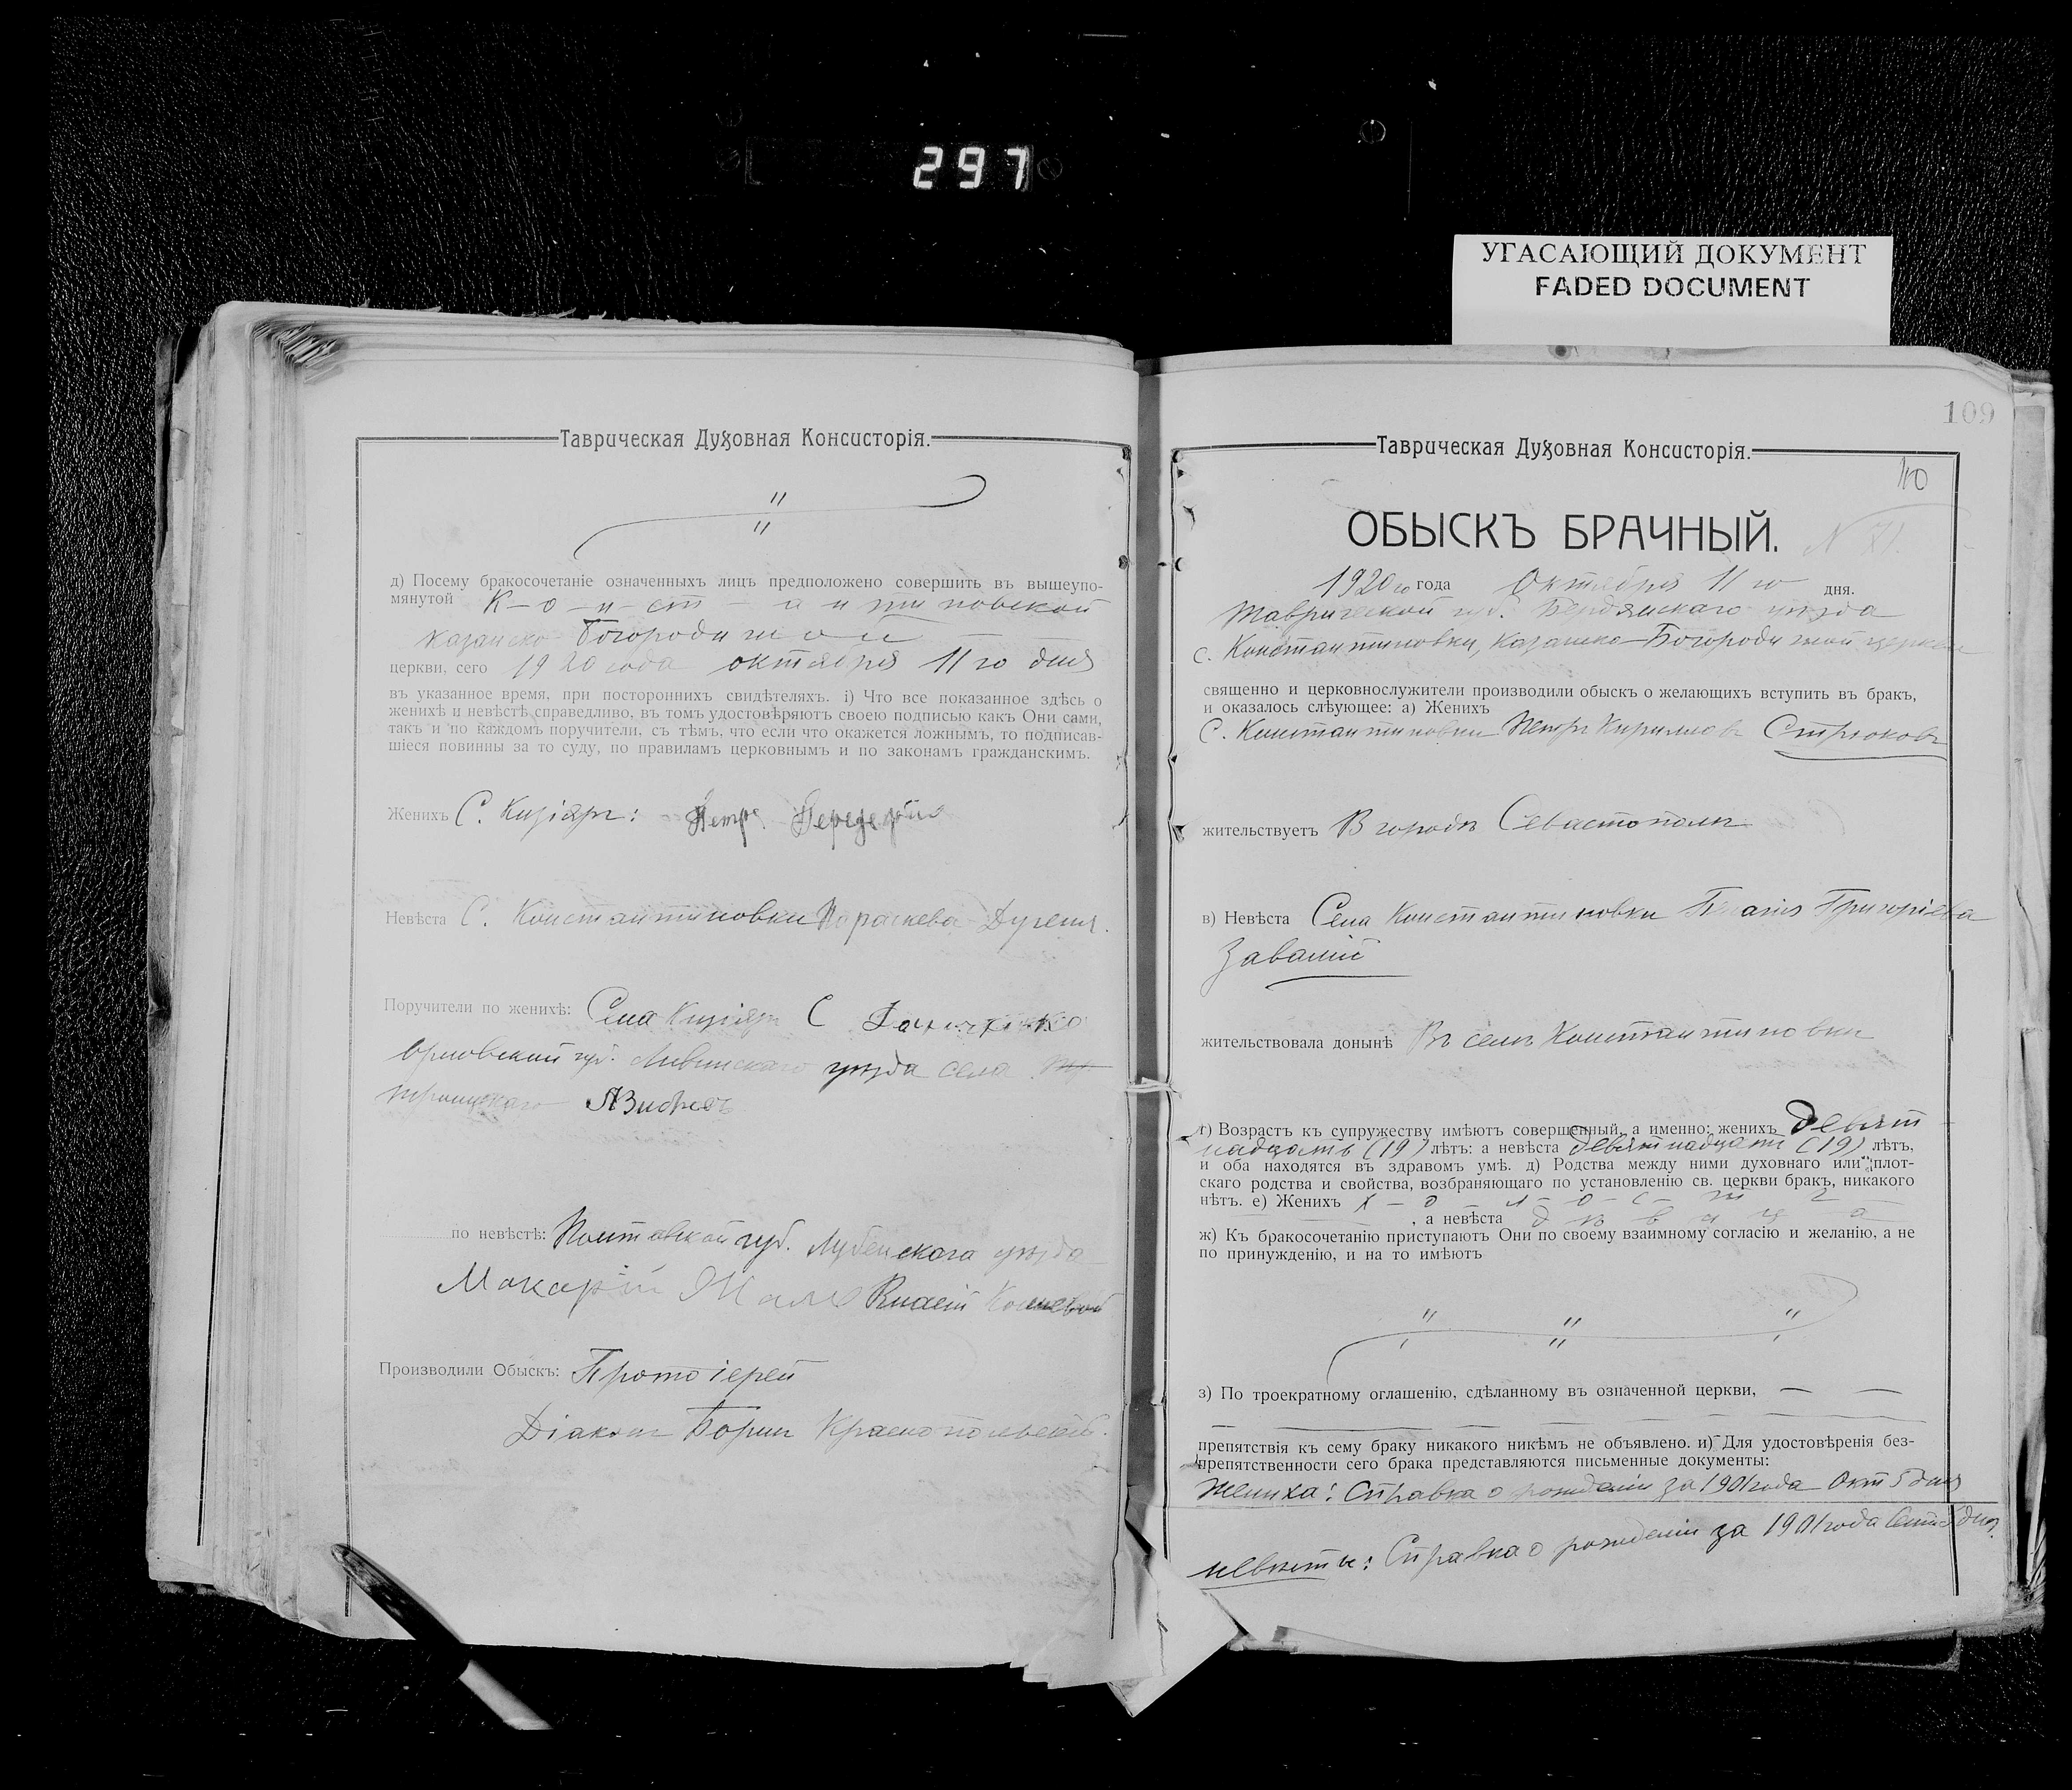 297
УГАСАЮЩИЙ ДОКУМЕНТ
FADED DOCUMENT
Таврическая Духовная Консисторія.
д) Посему бракосочетаніе означенныхъ лицъ предположено совершить въ вышеупо-
мянутой К-о-н-ст-антиновской
Казанско-Богородичной
церкви, сего 1920 года октября 11го дня
въ указанное время, при постороннихъ свидѣтеляхъ. і) Что все показанное здѣсь о
женихѣ и невѣстѣ справедливо, въ томъ удостовѣряютъ своею подписью какъ Они сами,
такъ и по каждомъ поручители, съ тѣмъ, что если что окажется ложнымъ, то подписав-
шіеся повинны за то суду, по правиламъ церковнымъ и по законамъ гражданскимъ.
Женихъ С. Кизіяръ: Петръ
Невѣста С. Константиновки Параскева
Поручители по женихѣ: Села Кизіяръ С
Орловской губ. Ливенскаго уѣзда села
Троицкаго
по невѣстѣ: Полтавской губ. Лубенскаго уѣзда
Макарій
Производили Обыскъ: Протоіерей
Діаконъ Борисъ Краснопольскій.
109
Таврическая Духовная Консисторія.
110
ОБЫСКЪ БРАЧНЫЙ.
1920го года Октября 11го дня.
Таврической губ. Бердянскаго уѣзда
с. Константиновки, Казанско-Богородичной церкви
священно и церковнослужители производили обыскъ о желающихъ вступить въ бракъ,
и оказалось слѣующее: а) Женихъ
С. Константиновки Петръ Кирилловъ Стрюковъ
жительствуетъ В городѣ Севастополѣ
в) Невѣста Села Константиновки Григоріева
жительствовала донынѣ Въ селѣ Константиновки
г) Возрастъ къ супружеству имѣютъ совершенный, а именно: женихъ девят
надцать (19) лѣтъ: а невѣста девятнадцать (19) лѣтъ,
и оба находятся въ здравомъ умѣ. д) Родства между ними духовнаго или плот-
скаго родства и свойства, возбраняющаго по установленію св. церкви бракъ, никакого
нѣтъ. е) Женихъ х-о-л-о-с-т
, а невѣста дѣвица
ж) Къ бракосочетанію приступаютъ Они по своему взаимному согласію и желанію, а не
по принужденію, и на то имѣютъ
з) По троекратному оглашенію, сдѣланному въ означенной церкви,
препятствія къ сему браку никакого никѣмъ не объявлено. и) Для удостовѣренія без-
препятственности сего брака представляются письменные документы:
Жениха: Справка о рожденіи за 1901 года Окт 5 дня
невѣсты: Справка о рожденіи за 1901 года Сент 5 дня